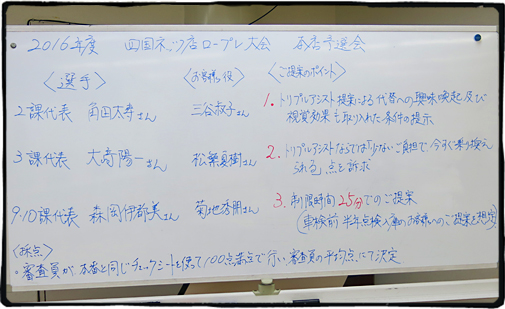 2016年度 四国ネッツ店ロープレ大会 本店予選会
〈選手〉 〈お客様役〉 〈ご提案のポイント〉
2課代表 角田太寿さん 三谷叔子さん 1. トリプルアシスト提案による代替への興味喚起及び
視覚効果も取り入れた条件の提示
3課代表 大高陽一さん 松繁夏樹さん 2. トリプルアシストならでは「少ないご負担で今すぐ乗り換え
られる」点を訴求
9.10課代表 森岡伊都美さん 菊地秀明さん 3. 制限時間25分でのご提案
(車検前半年点検入庫のお客様へのご提案を想定)
〈採点〉
・審査員が、本番と同じチェックシートを使って100点満点で行い、審査員の平均点にて決定